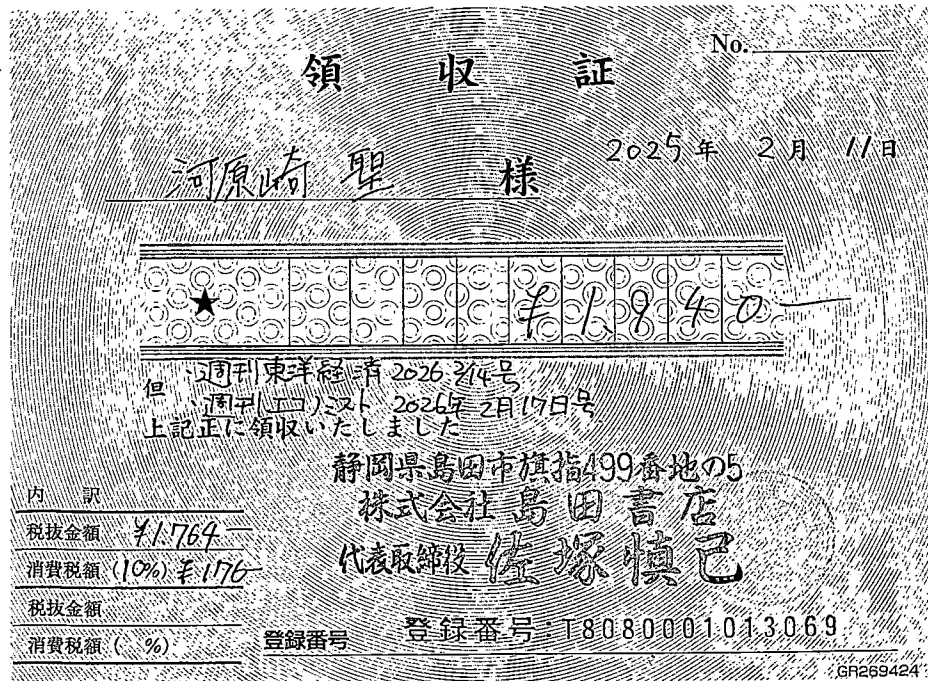 No.
領収証
2025年 2月 11日
河原崎 聖 様
★ ¥1,940-
但 ・週刊東洋経済 2026 2/14号
・週刊エコノミスト 2026年 2月17日号
上記正に領収いたしました
静岡県島田市旗指499番地の5
株式会社 島田書店
代表取締役 佐塚慎己
内 訳
税抜金額 ¥1,764-
消費税額 (10%) ¥176-
税抜金額
消費税額 ( %)
登録番号 登録番号:T8080001013069
GR269424